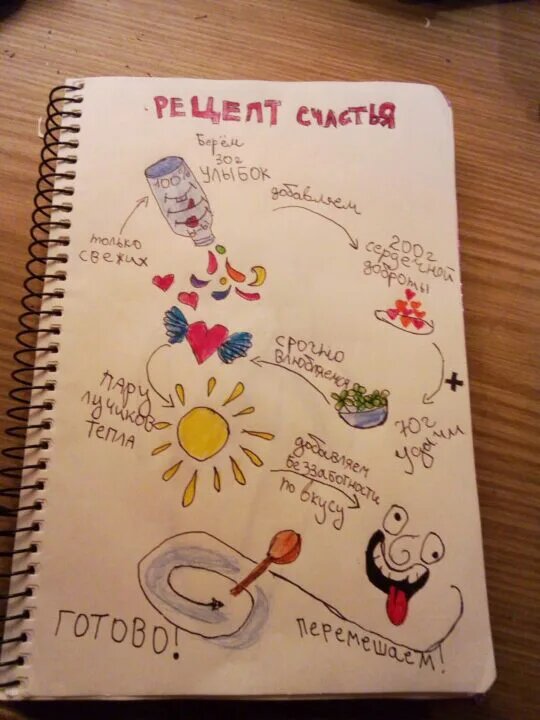 РЕЦЕПТ СЧАСТЬЯ
Берём
30г
УЛЫБОК
100%
только
свежих
добавляем
200г
сердечной
доброты
+
70г
срочно
влюбляемся
ПАРУ
ЛУЧИКОВ
ТЕПЛА
добавляем
беззаботности
по вкусу
перемешаем!
ГОТОВО!